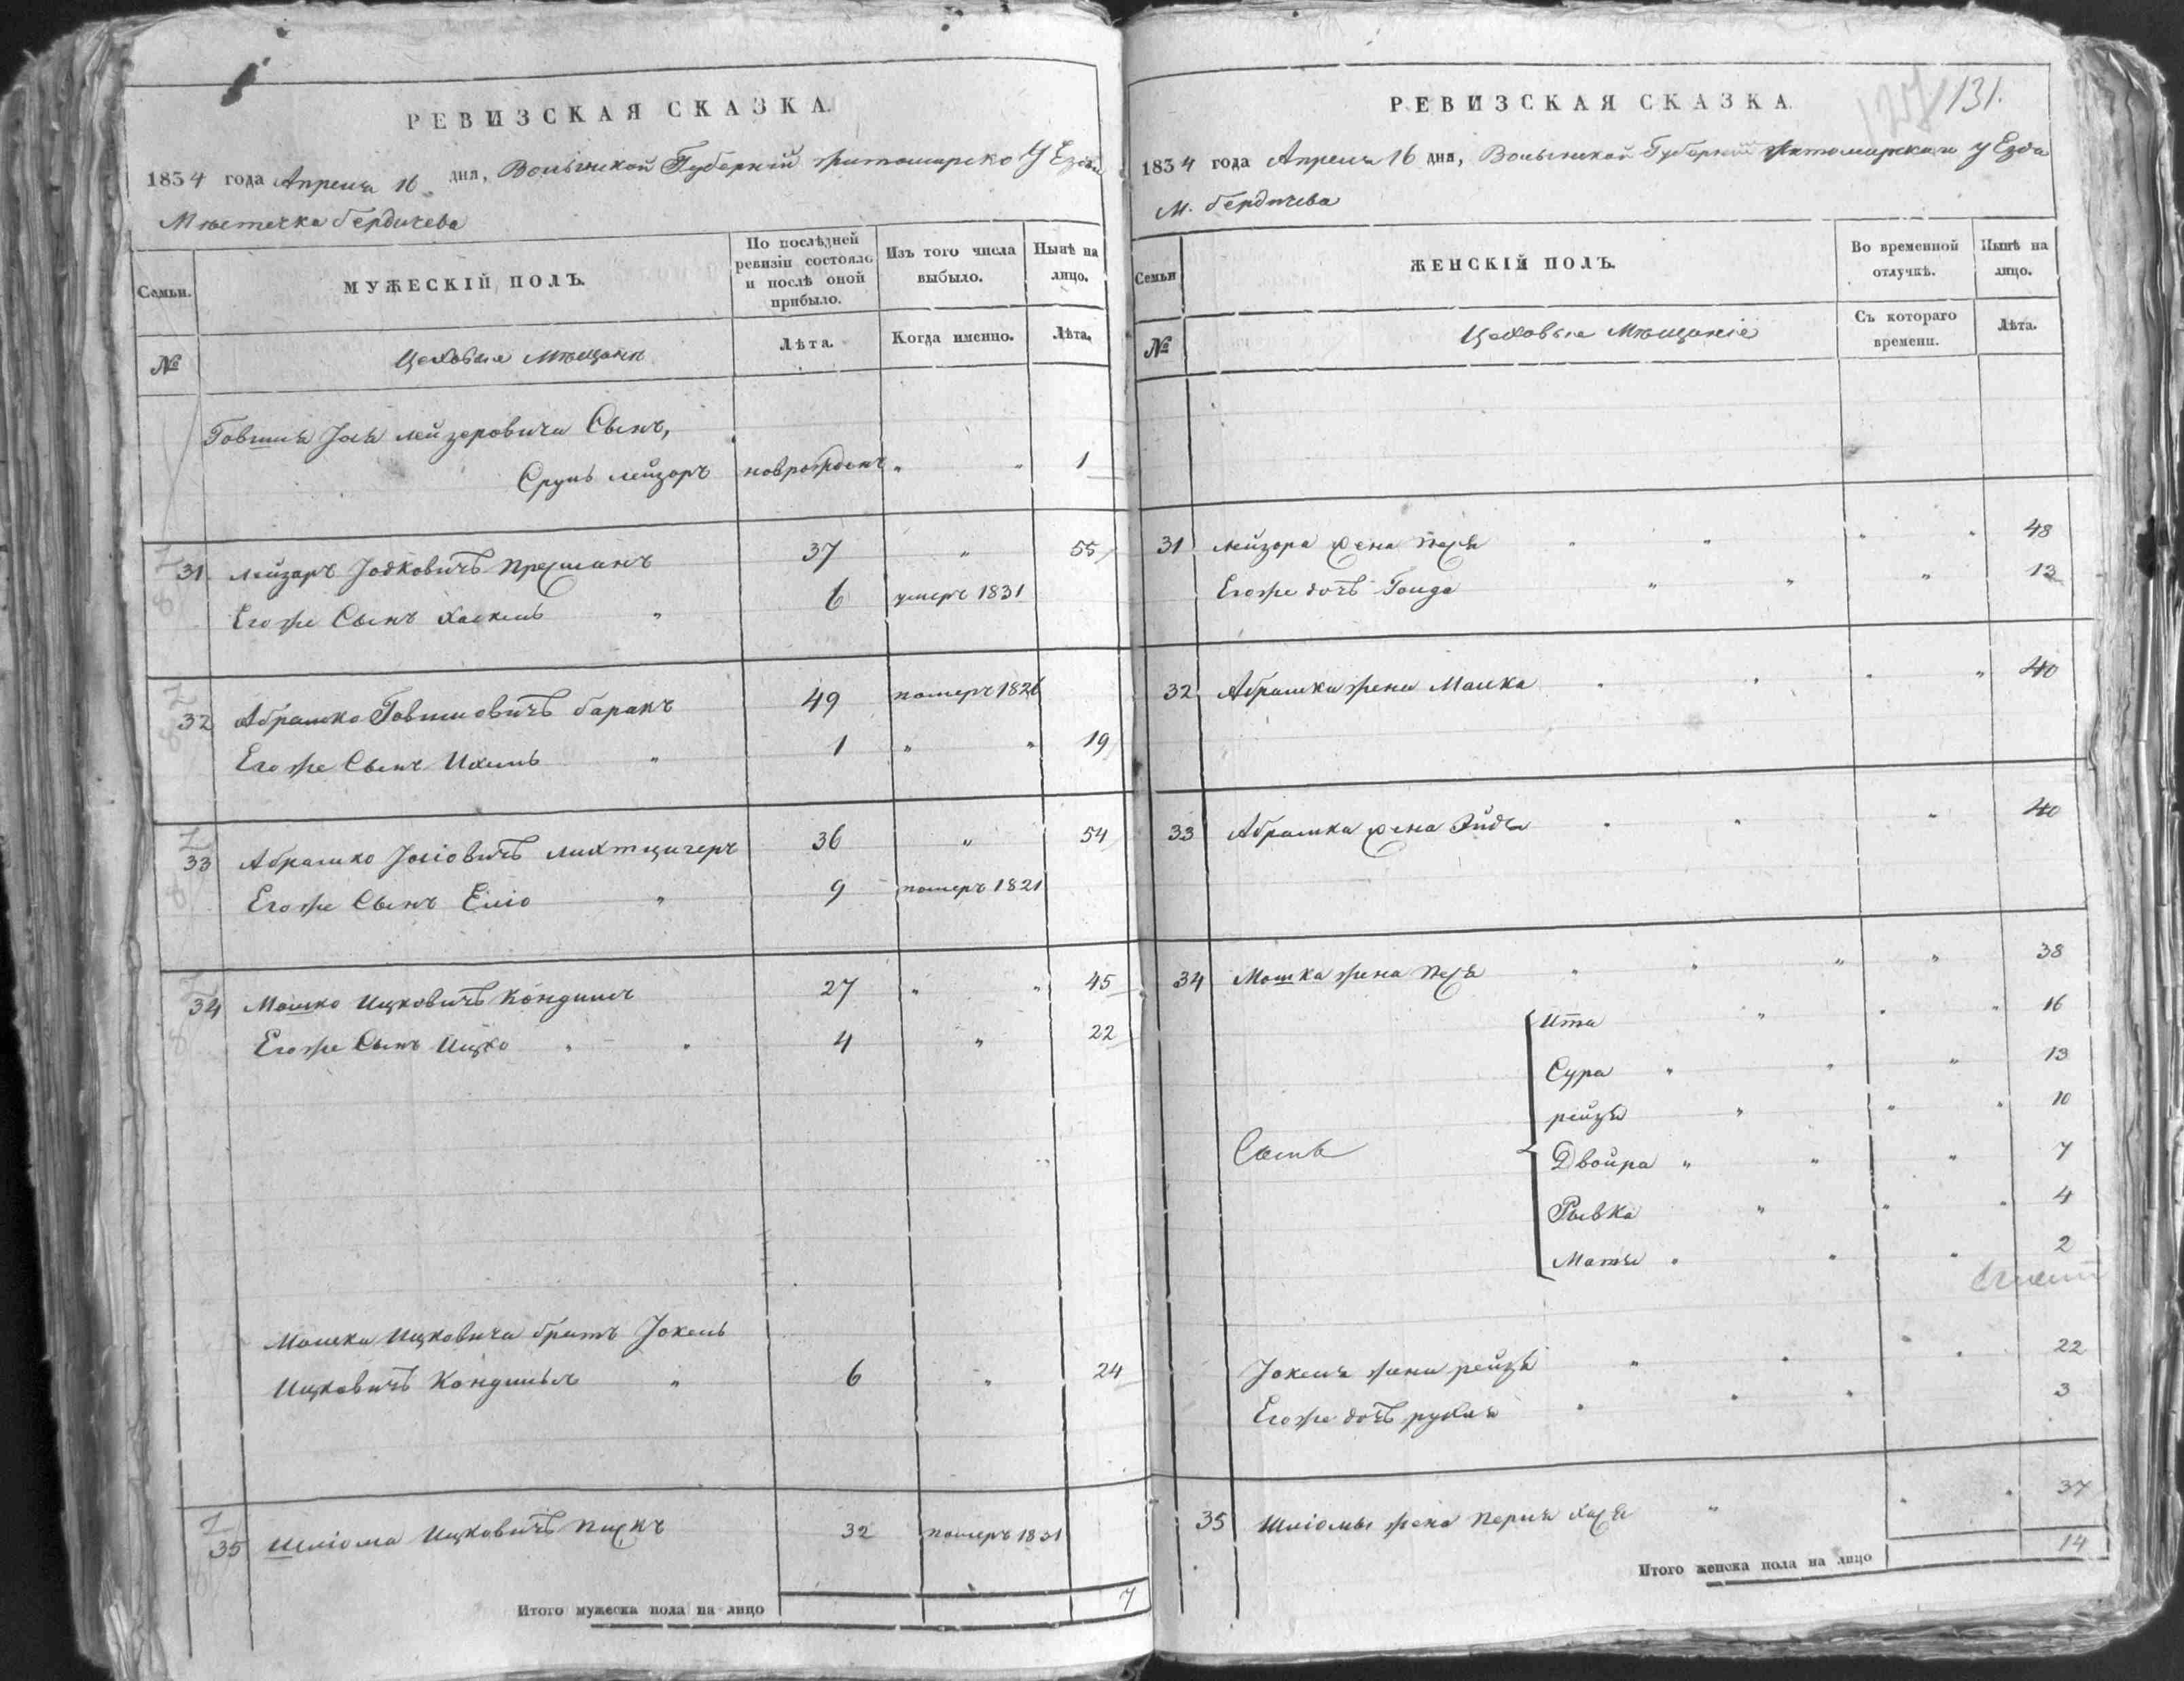 РЕВИЗСКАЯ СКАЗКА.
1834 года Апреля 16 дня, Волынской Губерніи Житомирско Уезда
Мѣстечка Бердичева
Семьи.
МУЖЕСКІЙ ПОЛЪ.
По послѣдней ревизіи состояло и послѣ оной прибыло.
Изъ того числа выбыло.
Нынѣ на лицо.
№
Цеховые Мѣщане
Лѣта.
Когда именно.
Лѣта.
Говшия Лейзеровича Сынъ,
Сруль Лейзоръ новрожденъ " " 1
31 Лейзаръ Іовковичъ 37 " 55
Егоже Сынъ Хаскель " 6 умеръ 1831
32 Абрамко Говшиовичъ Баракъ 49 померъ 1826
Егоже Сынъ Ихиль " 1 " " 19
33 Абрамко Лихтцигеръ 36 " 54
Егоже Сынъ Еліо " 9 померъ 1821
34 Мошко Ицковичъ 27 " " 45
Егоже Сынъ Ицко " " 4 " 22
Мошка Ицковича братъ Іокель
Ицковичъ " 6 " 24
35 Шліома Ицковичъ 32 померъ 1831
Итого мужеска пола на лицо 7
РЕВИЗСКАЯ СКАЗКА.
131.
1834 года Апреля 16 дня, Волынской Губерніи Житомирскаго уезда
М. Бердичева
Семьи
ЖЕНСКІЙ ПОЛЪ.
Во временной отлучкѣ.
Нынѣ на лицо.
№
Цеховые Мѣщаніе
Съ котораго времени.
Лѣта.
31 Лейзора жена Песя " " " " 48
Егоже дочь " " " 13
32 Абрамка жена Малка " " " " 40
33 Абрамка жена " " " 40
34 Мошка жена Песя " " " " 38
Ита " " " 16
Сура " " " 13
рейзя " " " 10
Двойра " " " 7
Рывка " " " 4
Матя " " " 2
Іокеля жена рейзя " " " " 22
Егоже дочь рухля " " " 3
35 Шліомы жена Перля Хася " " " 37
Итого женска пола на лицо 14